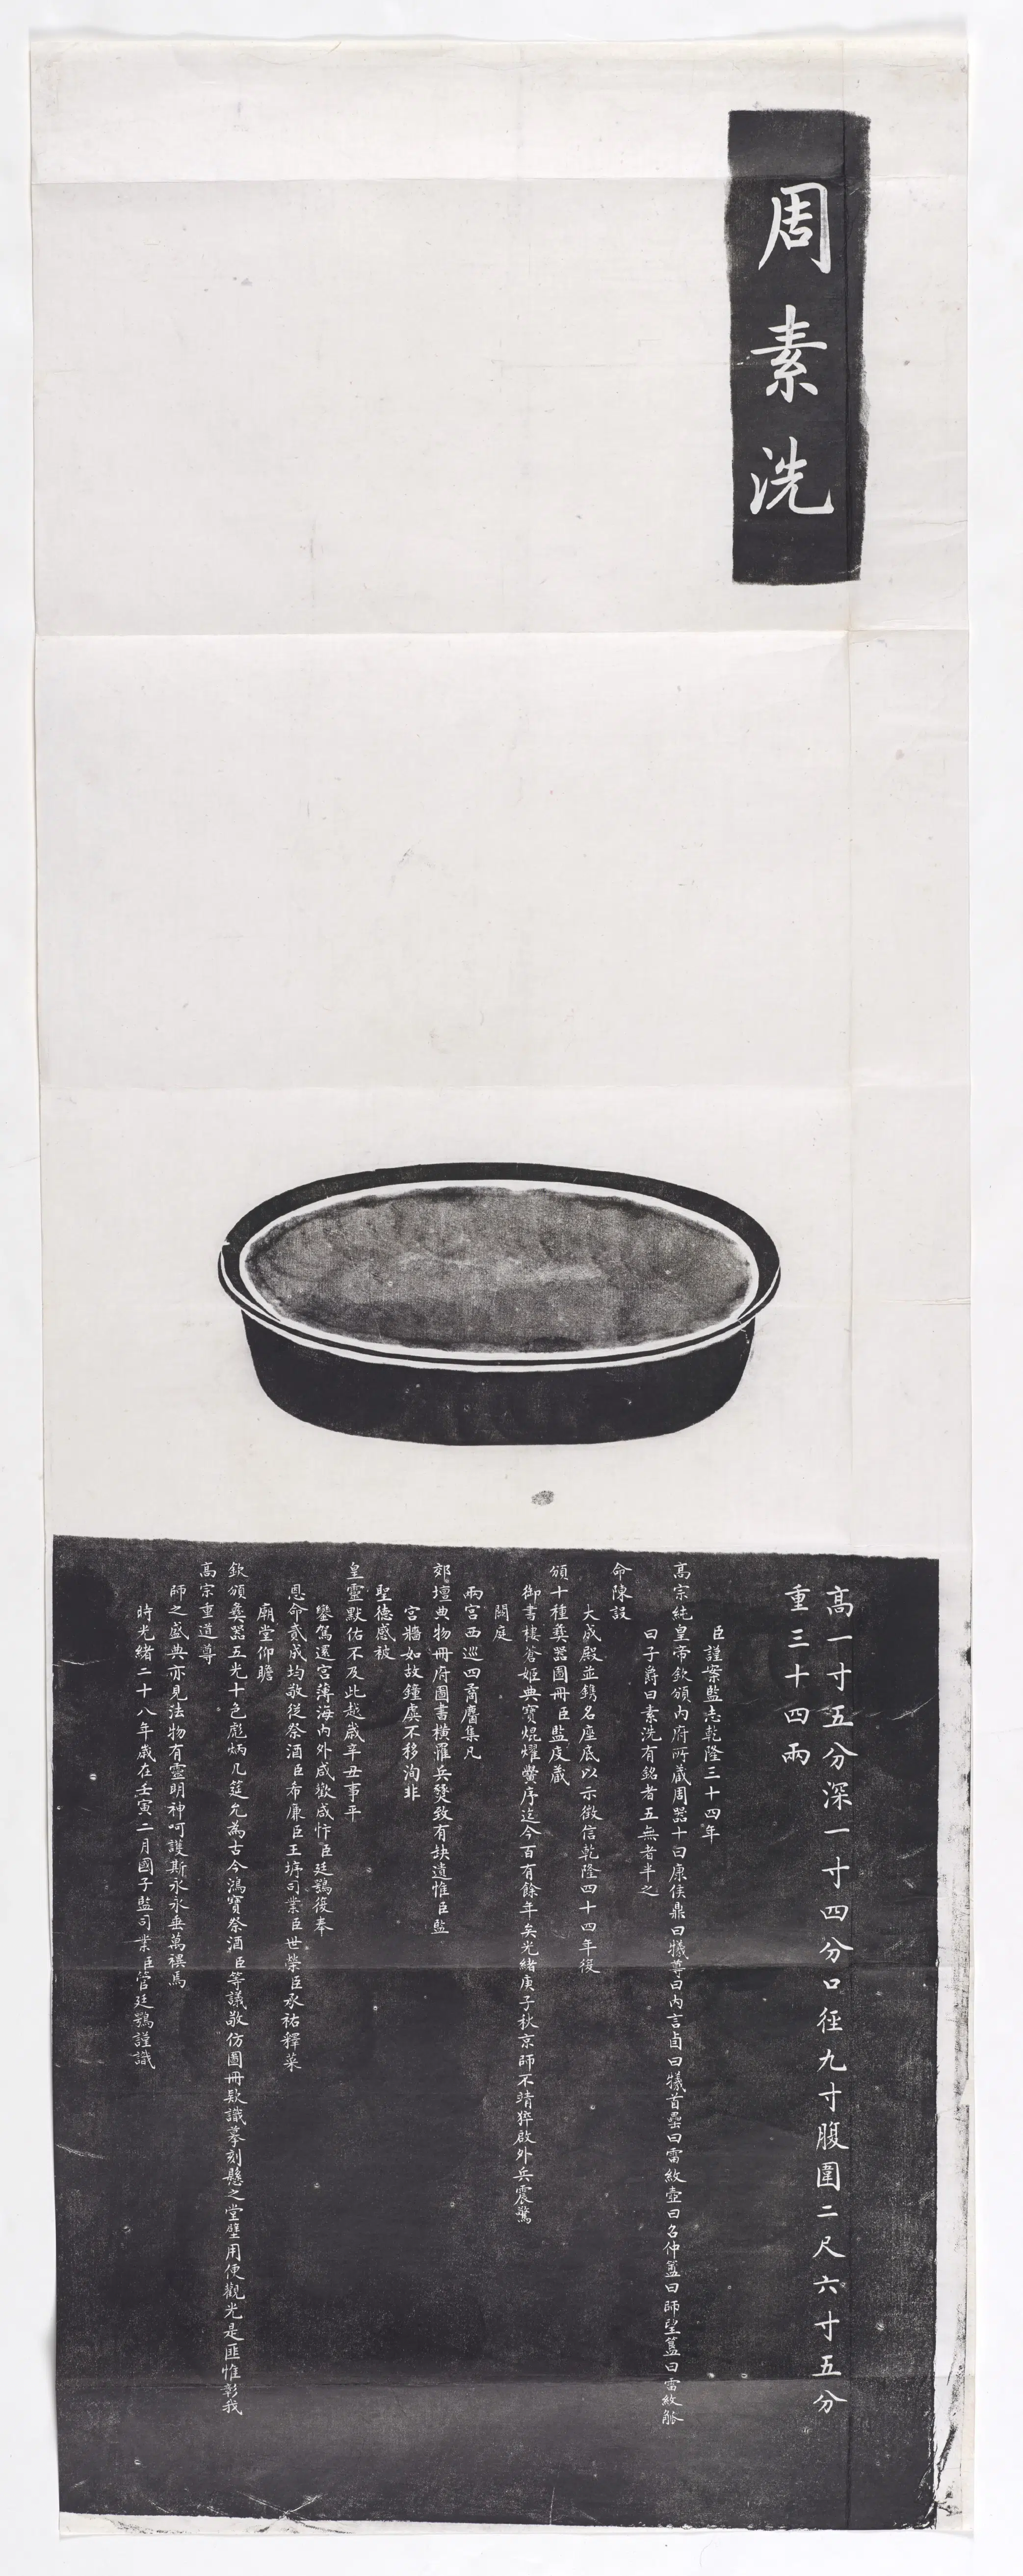 周素洗
高一寸五分深一寸四分口徑九寸腹圍二尺六寸五分
重三十四兩
臣謹案監志乾隆三十四年
高宗純皇帝欽頒內府所藏周器十曰康侯鼎曰犧尊曰內言卣曰犧首罍曰雷紋壺曰召仲簠曰師望簋曰雷紋觚
曰子爵曰素洗有銘者五無者半之
命陳設
大成殿並鐫名座底以示徵信乾隆四十四年復
頒十種彝器圖冊臣監庋藏
御書樓奮姬典寶焜燿黌序迄今百有餘年矣光緒庚子秋京師不靖猝啟外兵震驚
闕庭
兩宮西巡四裔麕集凡
郊壇典物冊府圖書橫罹兵燹致有缺遺惟臣監
宮牆如故鐘虡不移洵非
聖德感被
皇靈默佑不及此越歲辛丑事平
鑾駕還宮薄海內外咸歡咸忭臣廷鶚復奉
恩命貳成均敬從祭酒臣希廉臣王垿司業臣世榮臣承祐釋菜
廟堂仰瞻
欽頒彝器五光十色彪炳几筵允為古今鴻寶祭酒臣等議敬仿圖冊款識摹刻懸之堂壁用便觀光是匪惟彰我
高宗重道尊
師之盛典亦見法物有靈明神呵護斯永永垂萬禩焉
時光緒二十八年歲在壬寅二月國子監司業臣管廷鶚謹識